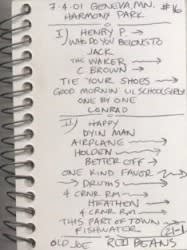 7-4-01 GENEVA, MN. #16
HARMONY PARK
I) HENRY P. →
WHO DO YOU BELONG TO
JACK
THE WAKER →
C BROWN →
TIE YOUR SHOES →
GOOD MORNIN LIL SCHOOLGIRL
ONE BY ONE
CONRAD
II) HAPPY
DYIN MAN
AIRPLANE →
HOLDEN →
BETTER OFF →
ONE KIND FAVOR →
→ DRUMS →
4 CRNR RM →
HEATHEN →
4 CRNR RM →
THIS PART OF TOWN
FISHWATER
OLD JOE RED BEANS